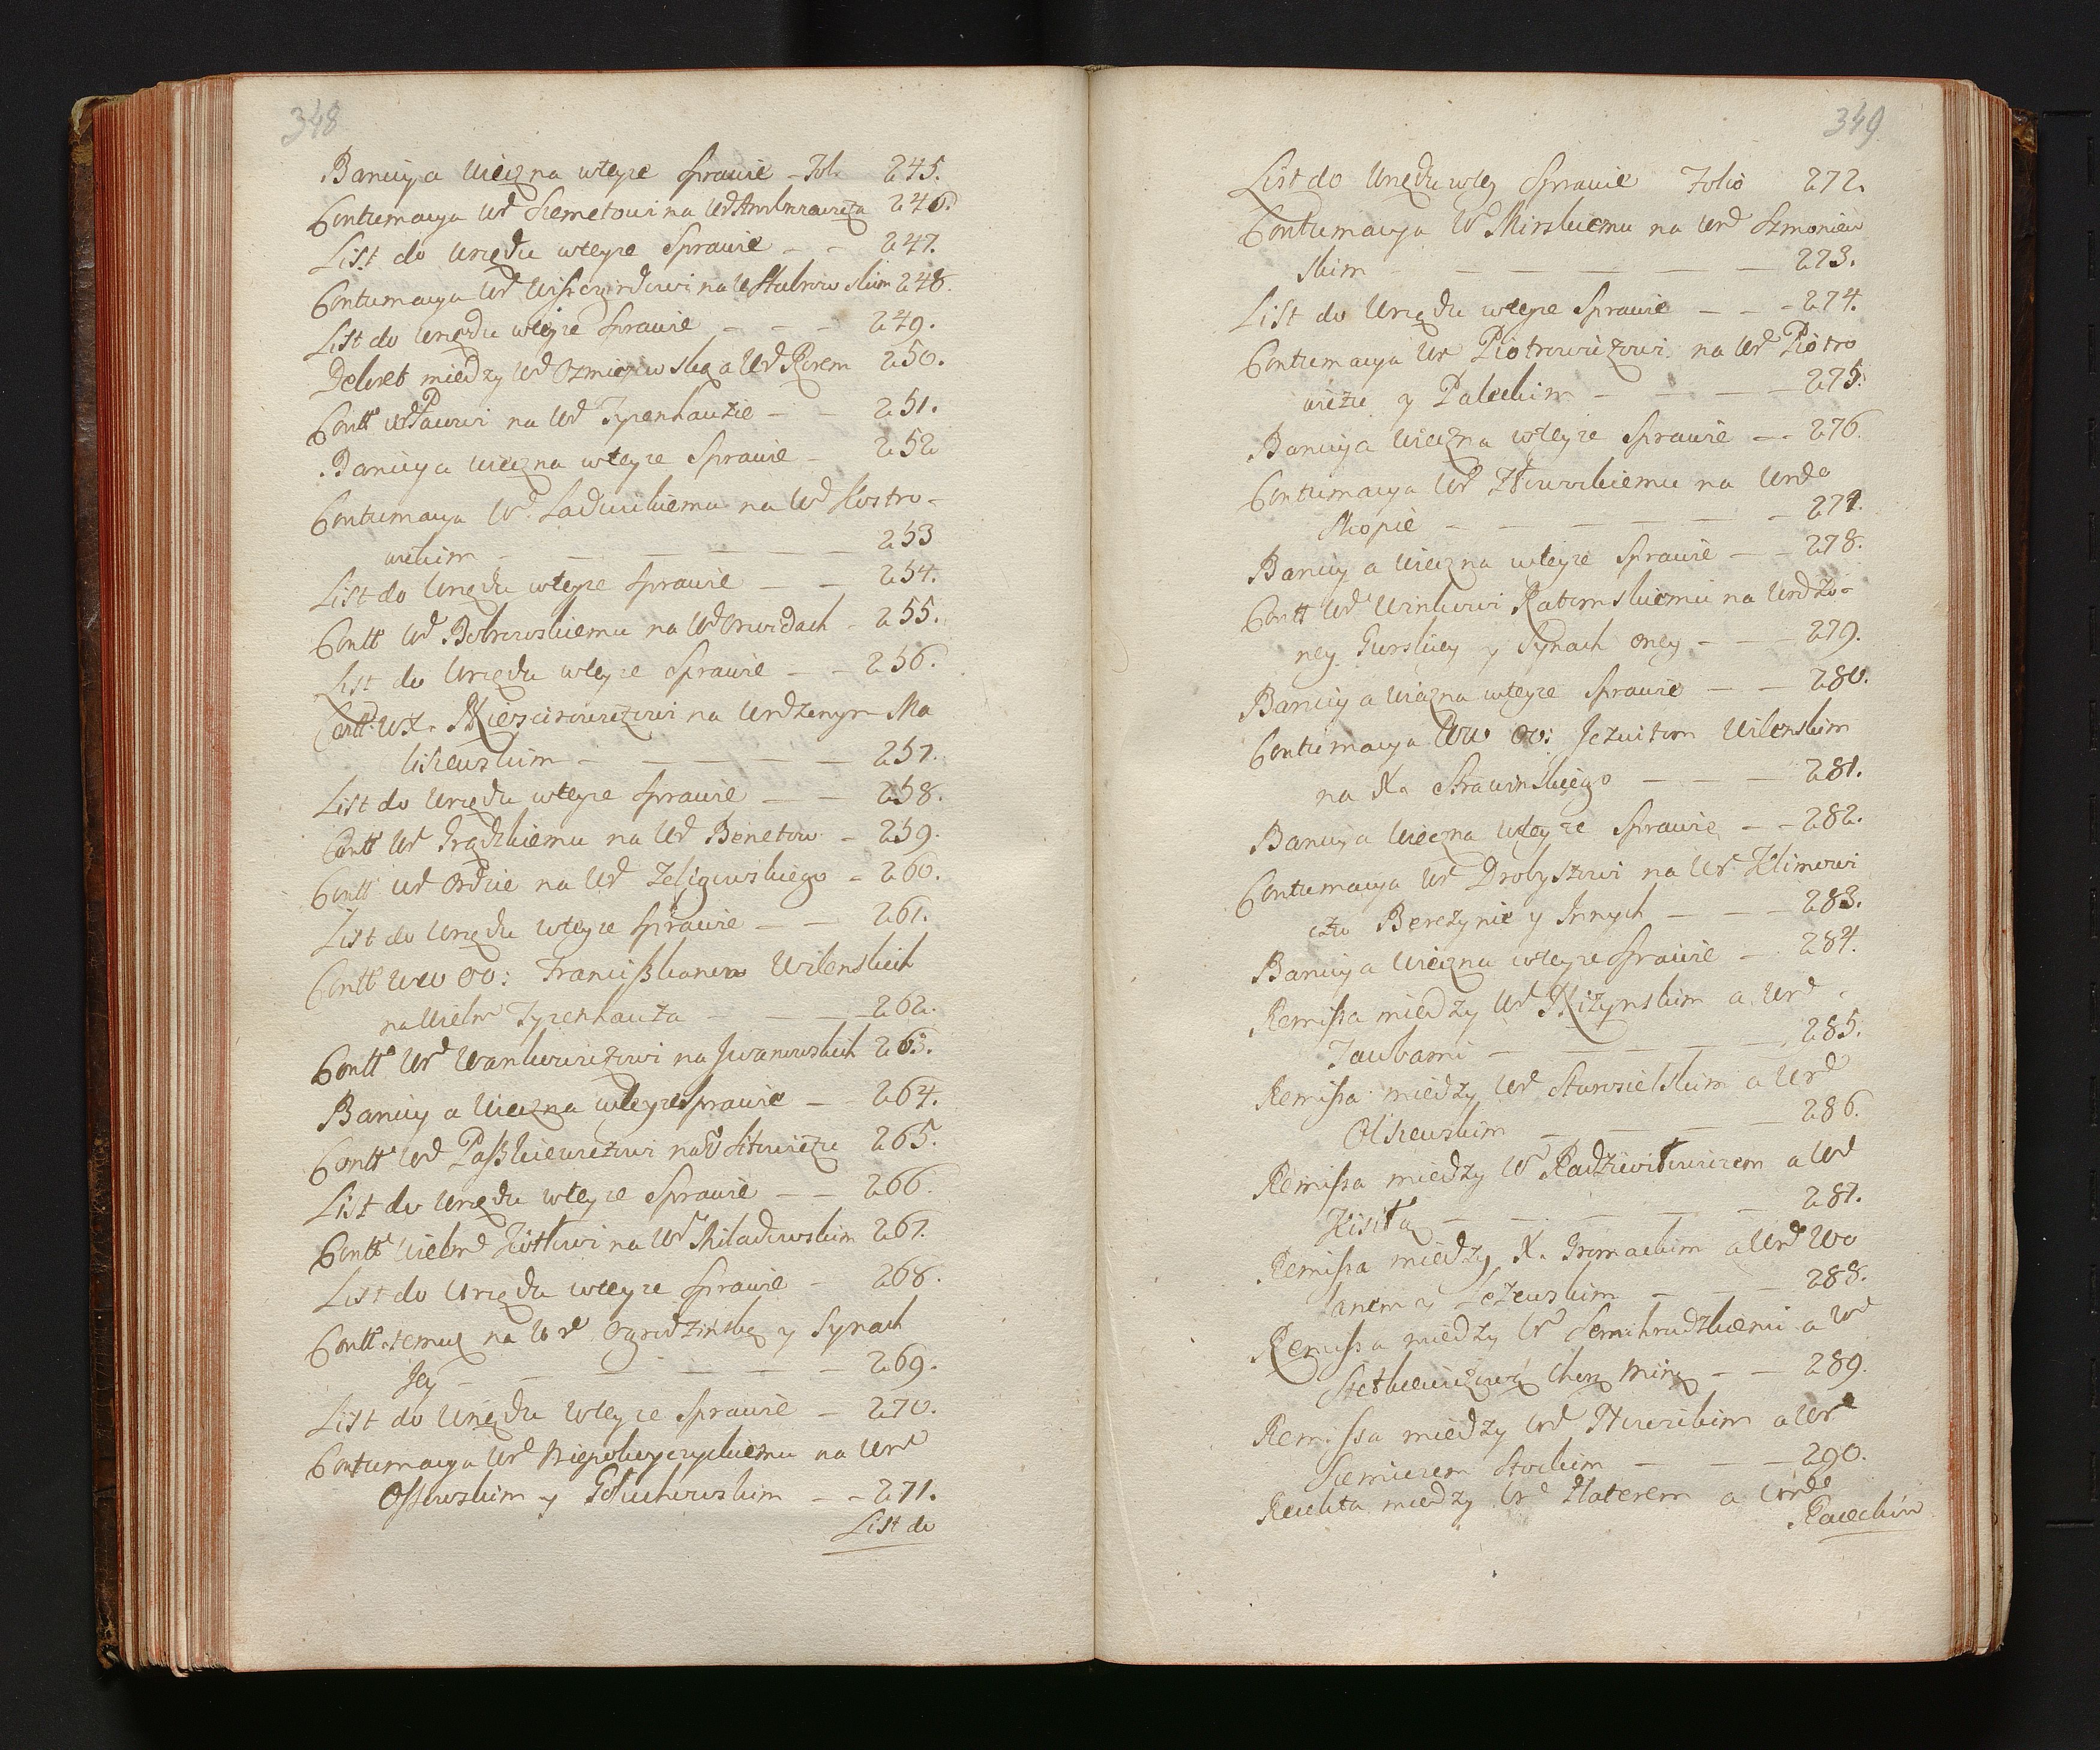 348
Banicya wieczna wteyze Sprawie - Fol. 245.
Contumacya Ur Siemetowi na Ur Ambrozewicza 246.
List do Urzędu wteyze Sprawie - - 247.
Contumacya Ur na 248.
List do Urzędu wteyze Sprawie - - - 249.
Dekret miedzy Ur a Ur Korem 250.
Contt Ur Pacowi na Ur Tyzenhauzie - - 251.
Banicya wieczna wteyze Sprawie - 252
Contumacya Ur Ladwickiemu na Ur Kostro-
wickim - - - - - - 253
List do Urzędu wteyze Sprawie - - 254.
Contt Ur Bobrowskiemu na Ur Orwidach - 255.
List do Urzędu wteyze Sprawie - - 256.
Contt X. na Urdzonym Ma
liszewskim - - - - - - 257.
List do Urzędu wteyze Sprawie - - 258.
Contt Ur Grądzkiemu na Ur Benetow - 259.
Contt Ur Ordzie na Ur Zeligowskiego - 260.
List do Urzędu wteyze Sprawie - - 261.
Contt WW OO: Franciszkanow Wilenskich
na Wielm Tyzenhauza - - - - 262.
Contt Ur Wankowiczowi na Iwanowskich 263.
Banicya wieczna wteyze Sprawie - - 264.
Contt Ur Paszkiewiczowi na Ur Sitowiczu 265.
List do Urzędu wteyze Sprawie - - 266.
Contt Wielm Zottowi na Ur Miladowskim 267.
List do Urzędu wteyze Sprawie - 268.
Contt temuz na Ur Ogrodzińską y Synach
Jey - - - - - - - 269.
List do Urzędu wteyze Sprawie - 270.
Contumacya Ur Niepokoyczyckiemu na Ur
Ossowskim y Gołuchowskim - - 271.
List do
349
List do Urzędu wtey Sprawie Folio 272.
Contumacya Ur Mirskiemu na Ur Szmoniew
skim - - - - - - 273.
List do Urzędu wteyze Sprawie - - - 274.
Contumacya Ur Piotrowiczowi na Ur Piotro
wiczu y Paleckim - - - - 275.
Banicya wieczna wteyze Sprawie - - 276
Contumacya Ur na Urdo
Skopie - - - - - - 277.
Banicya wieczna wteyze Sprawie - - 278.
Contt Ur Winkowi Ratomskiemu na Urdzo-
ney Gurskiey y Synach oney - - - 279.
Banicya wieczna wteyze Sprawie - - 280.
Contumacya WW OO: Jezuitom Wilenskim
na X. Strawinskiego - - - 281.
Banicya wieczna wteyze Sprawie - - 282.
Contumacya Ur Drobyszowi na Ur Klimowi
czu Berezynie y Innych - - - 283.
Banicya wieczna wteyze Sprawie - 284.
Remissa miedzy Ur Kizynskim a Ur
Zawbami - - - - - - 285.
Remissa miedzy Ur Starosielskim a Ur
Olszewskim - - - - - 286.
Remissa miedzy Ur Radziwiłowiczem a Ur
Kisiłą - - - - - - 287.
Remissa miedzy X. Gromackim a Ur Wo
łanem y Leżewskim - - - 288.
Remissa miedzy Ur Semihradzkiemi a Ur
Stetkiewiczową Choą Miną - - 289.
Remissa miedzy Ur Nowickim a Ur
Stockim - - - 290.
Reiekta miedzy Ur Platerem a Urdo
Raieckim